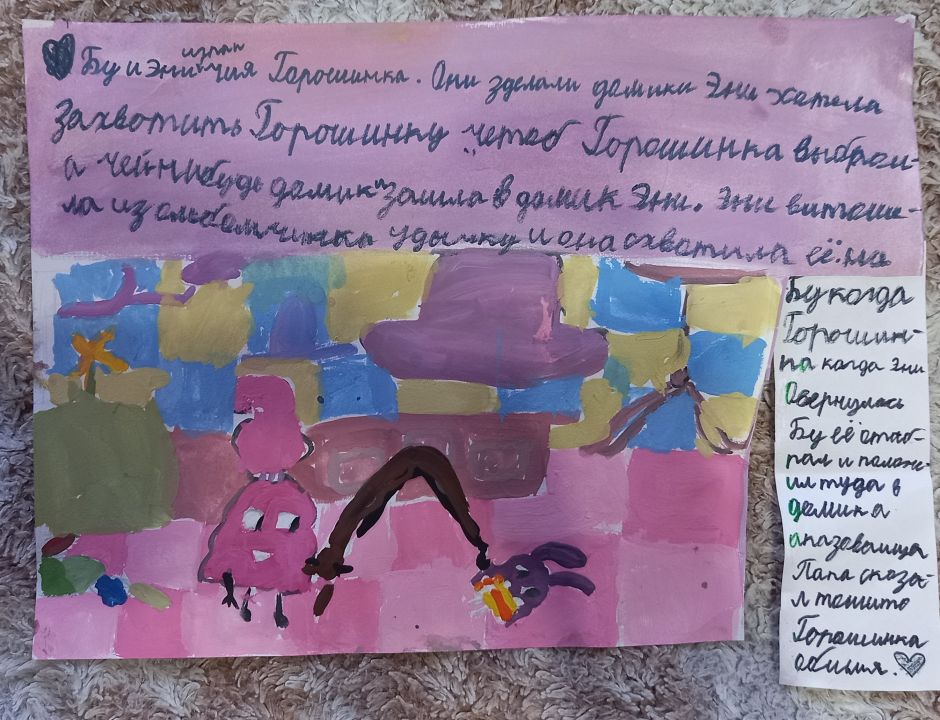 Бу и Эни изпан
чия Горошинка. Они зделали домики Эни хотела
Захвотить Горошинку "четоб Горошинка выброси-
а чей нибудь домик" зашла в домик Эни. Эни виташи-
ла из удычку и она схватила её. на
Бу когда
Горошин-
ка когда Эни
Овернулась
Бу её отаб-
рал и полож-
ил туда в
домик а
Папа сказы
л то што
Горошинка